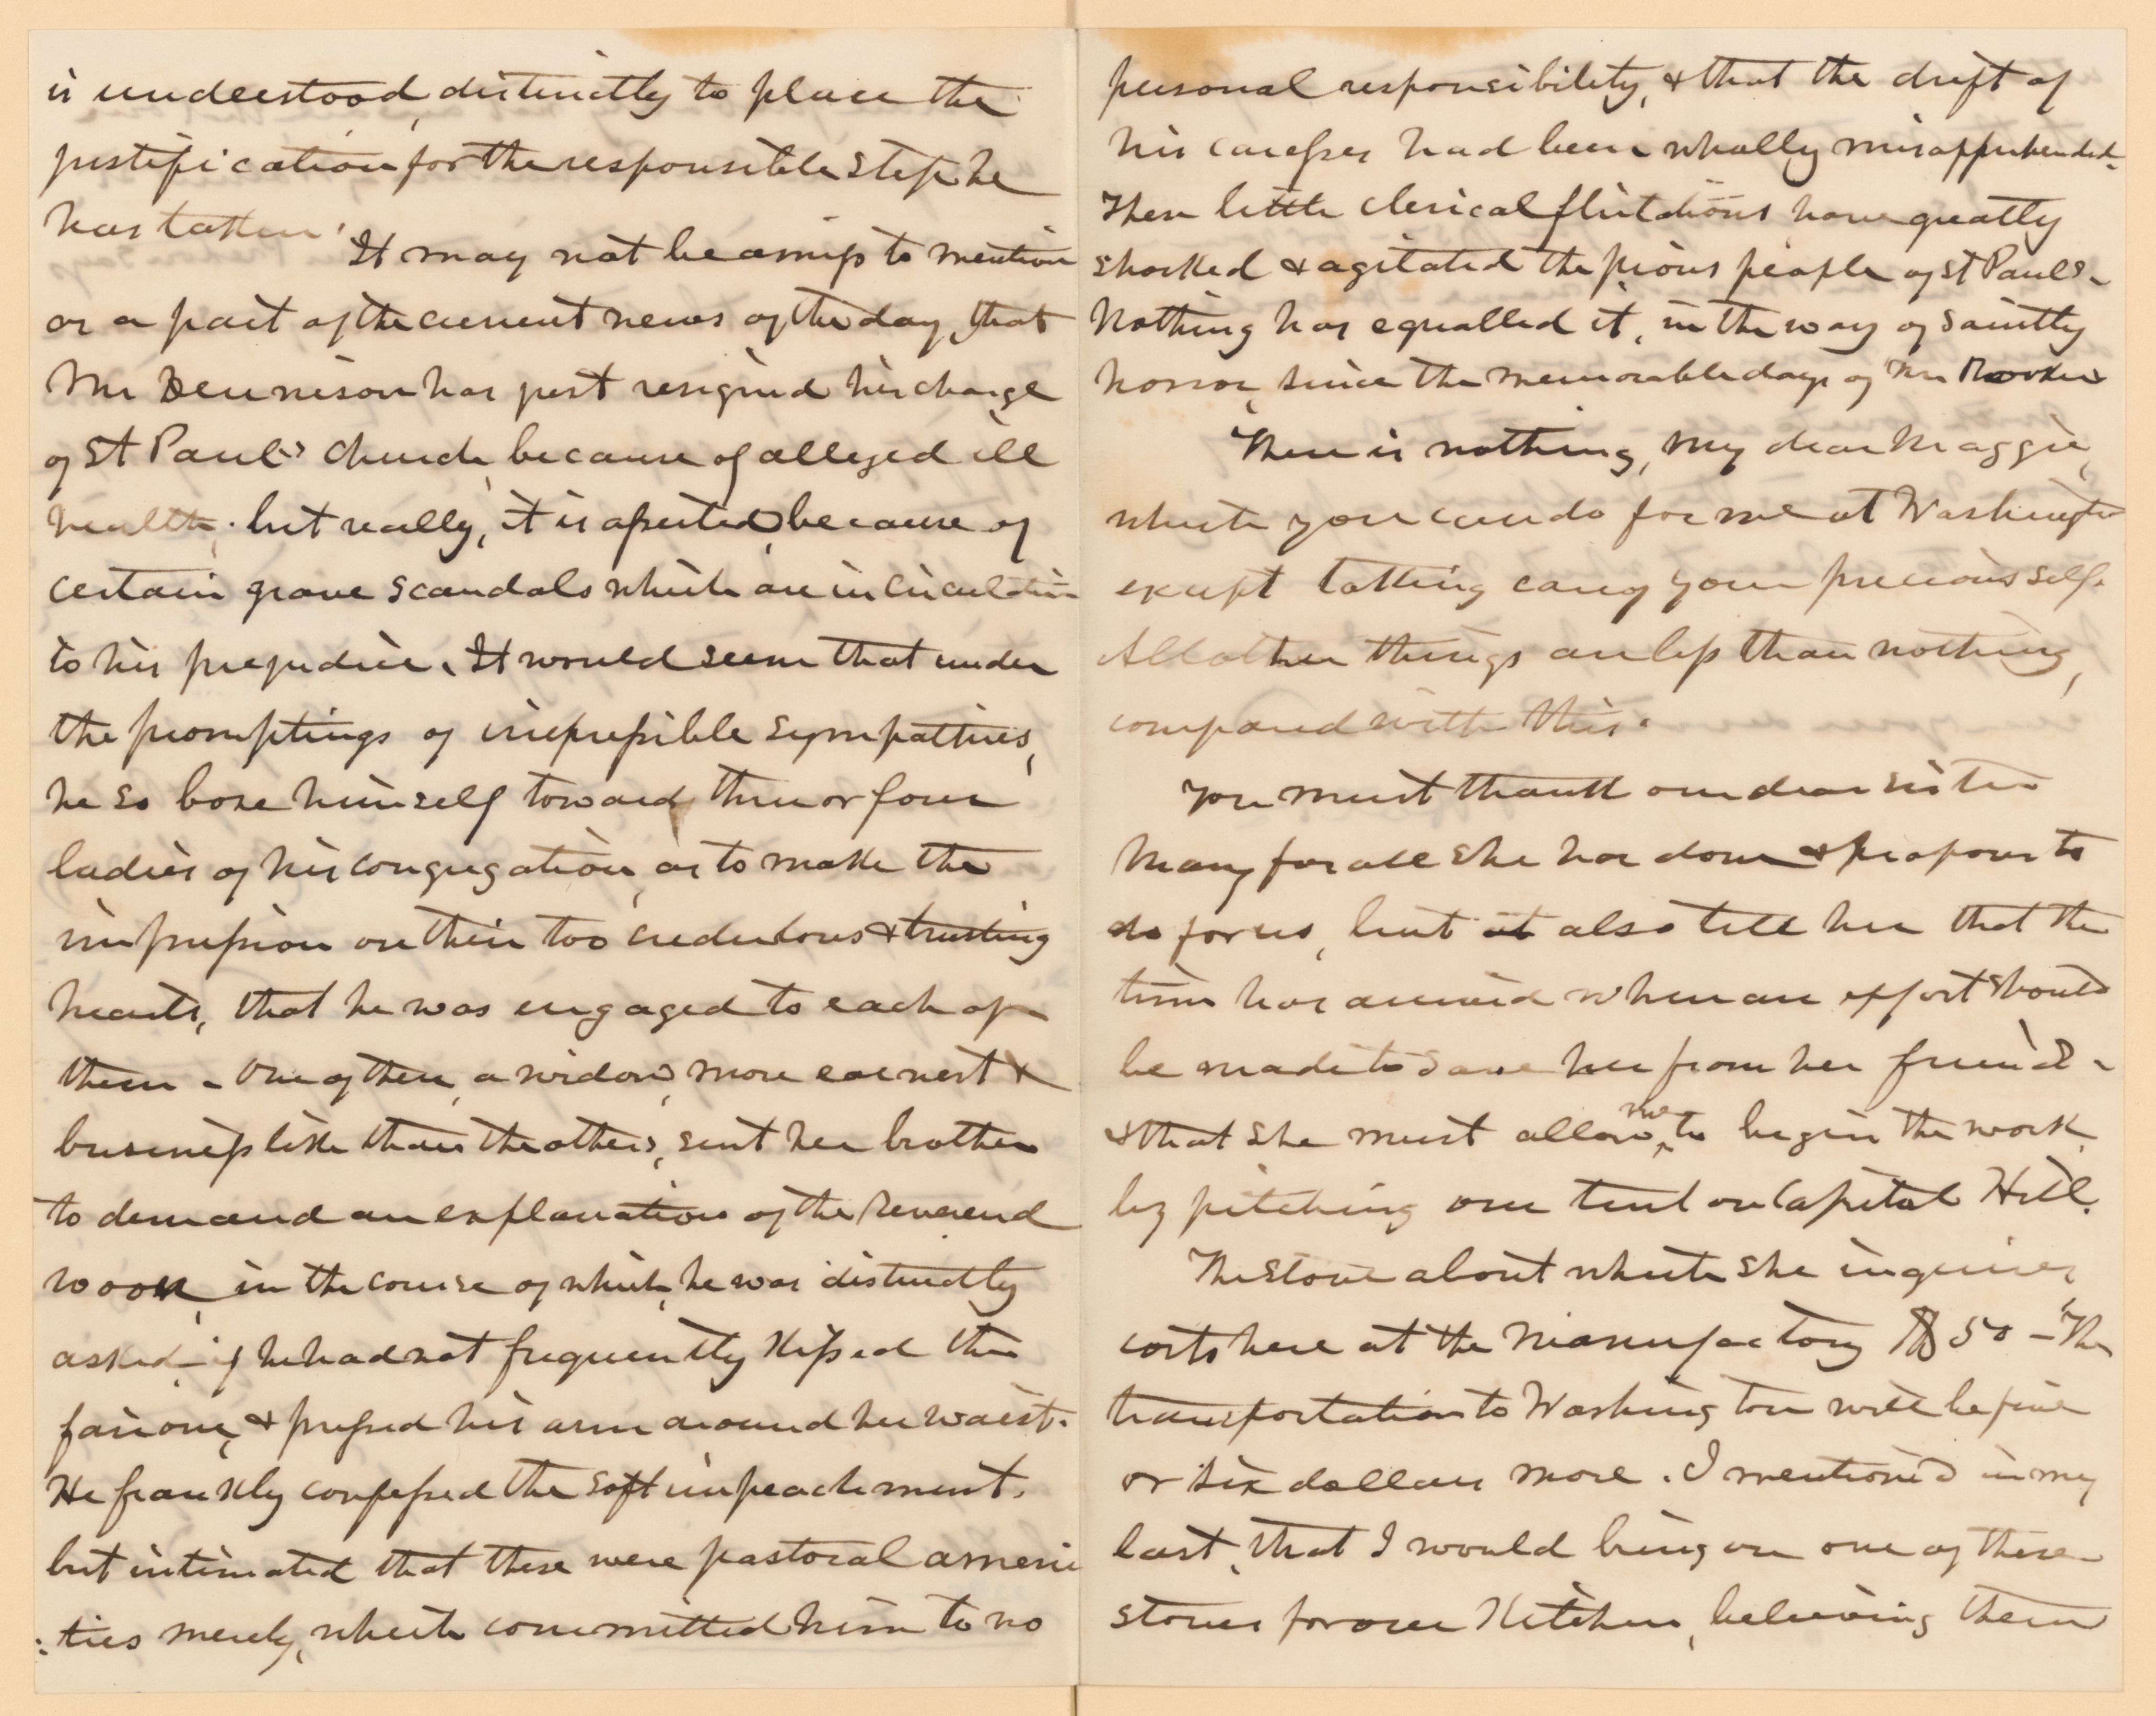 is understood, distinctly to place the
justification for the responsible step he
has taken.
It may not be amiss to mention
as a part of the current news of the day, that
Mr Dennison has just resigned his charge
of St Paul's church, because of alleged ill
health; but really, it is asserted, because of
certain grave scandals which are in circulation
to his prejudice. It would seem that under
the promptings of irrepressible sympathies,
he so bore himself toward three or four
ladies of his congregation, as to make the
impression on their too credulous & trusting
hearts, that he was engaged to each of
them - One of them, a widow, more earnest &
business like than the others, sent her brother
to demand an explanation of the Reverend
wooer, in the course of which, he was distinctly
asked, if he had not frequently kissed the
fair one, & pressed his arm around her waist.
He frankly confessed the soft impeachment,
but intimated that these were pastoral ameni
:ties merely, which committed him to no
personal responsibility, & that the drift of
his caresses had been wholly misapprehended.
These little clerical flirtations have greatly
shocked & agitated the pious people of St Pauls -
Nothing has equalled it, in the way of saintly
horror, since the memorable days of Mr
There is nothing, my dear Maggie,
which you can do for me at Washington
except taking care of your precious self.
All other things are less than nothing,
compared with this.
You must thank our dear sister
Mary for all she has done & proposes to
do for us, but at also tell her that the
time has arrived when an effort should
be made to save her from her friends -
& that she must allow me to begin the work
by pitching our tent on Capitol Hill.
The stove about which she inquires
costs here at the manufactory $50 - The
transportation to Washington will be five
or six dollars more. I mentioned in my
last, that I would bring on one of these
stoves for our kitchen, believing them